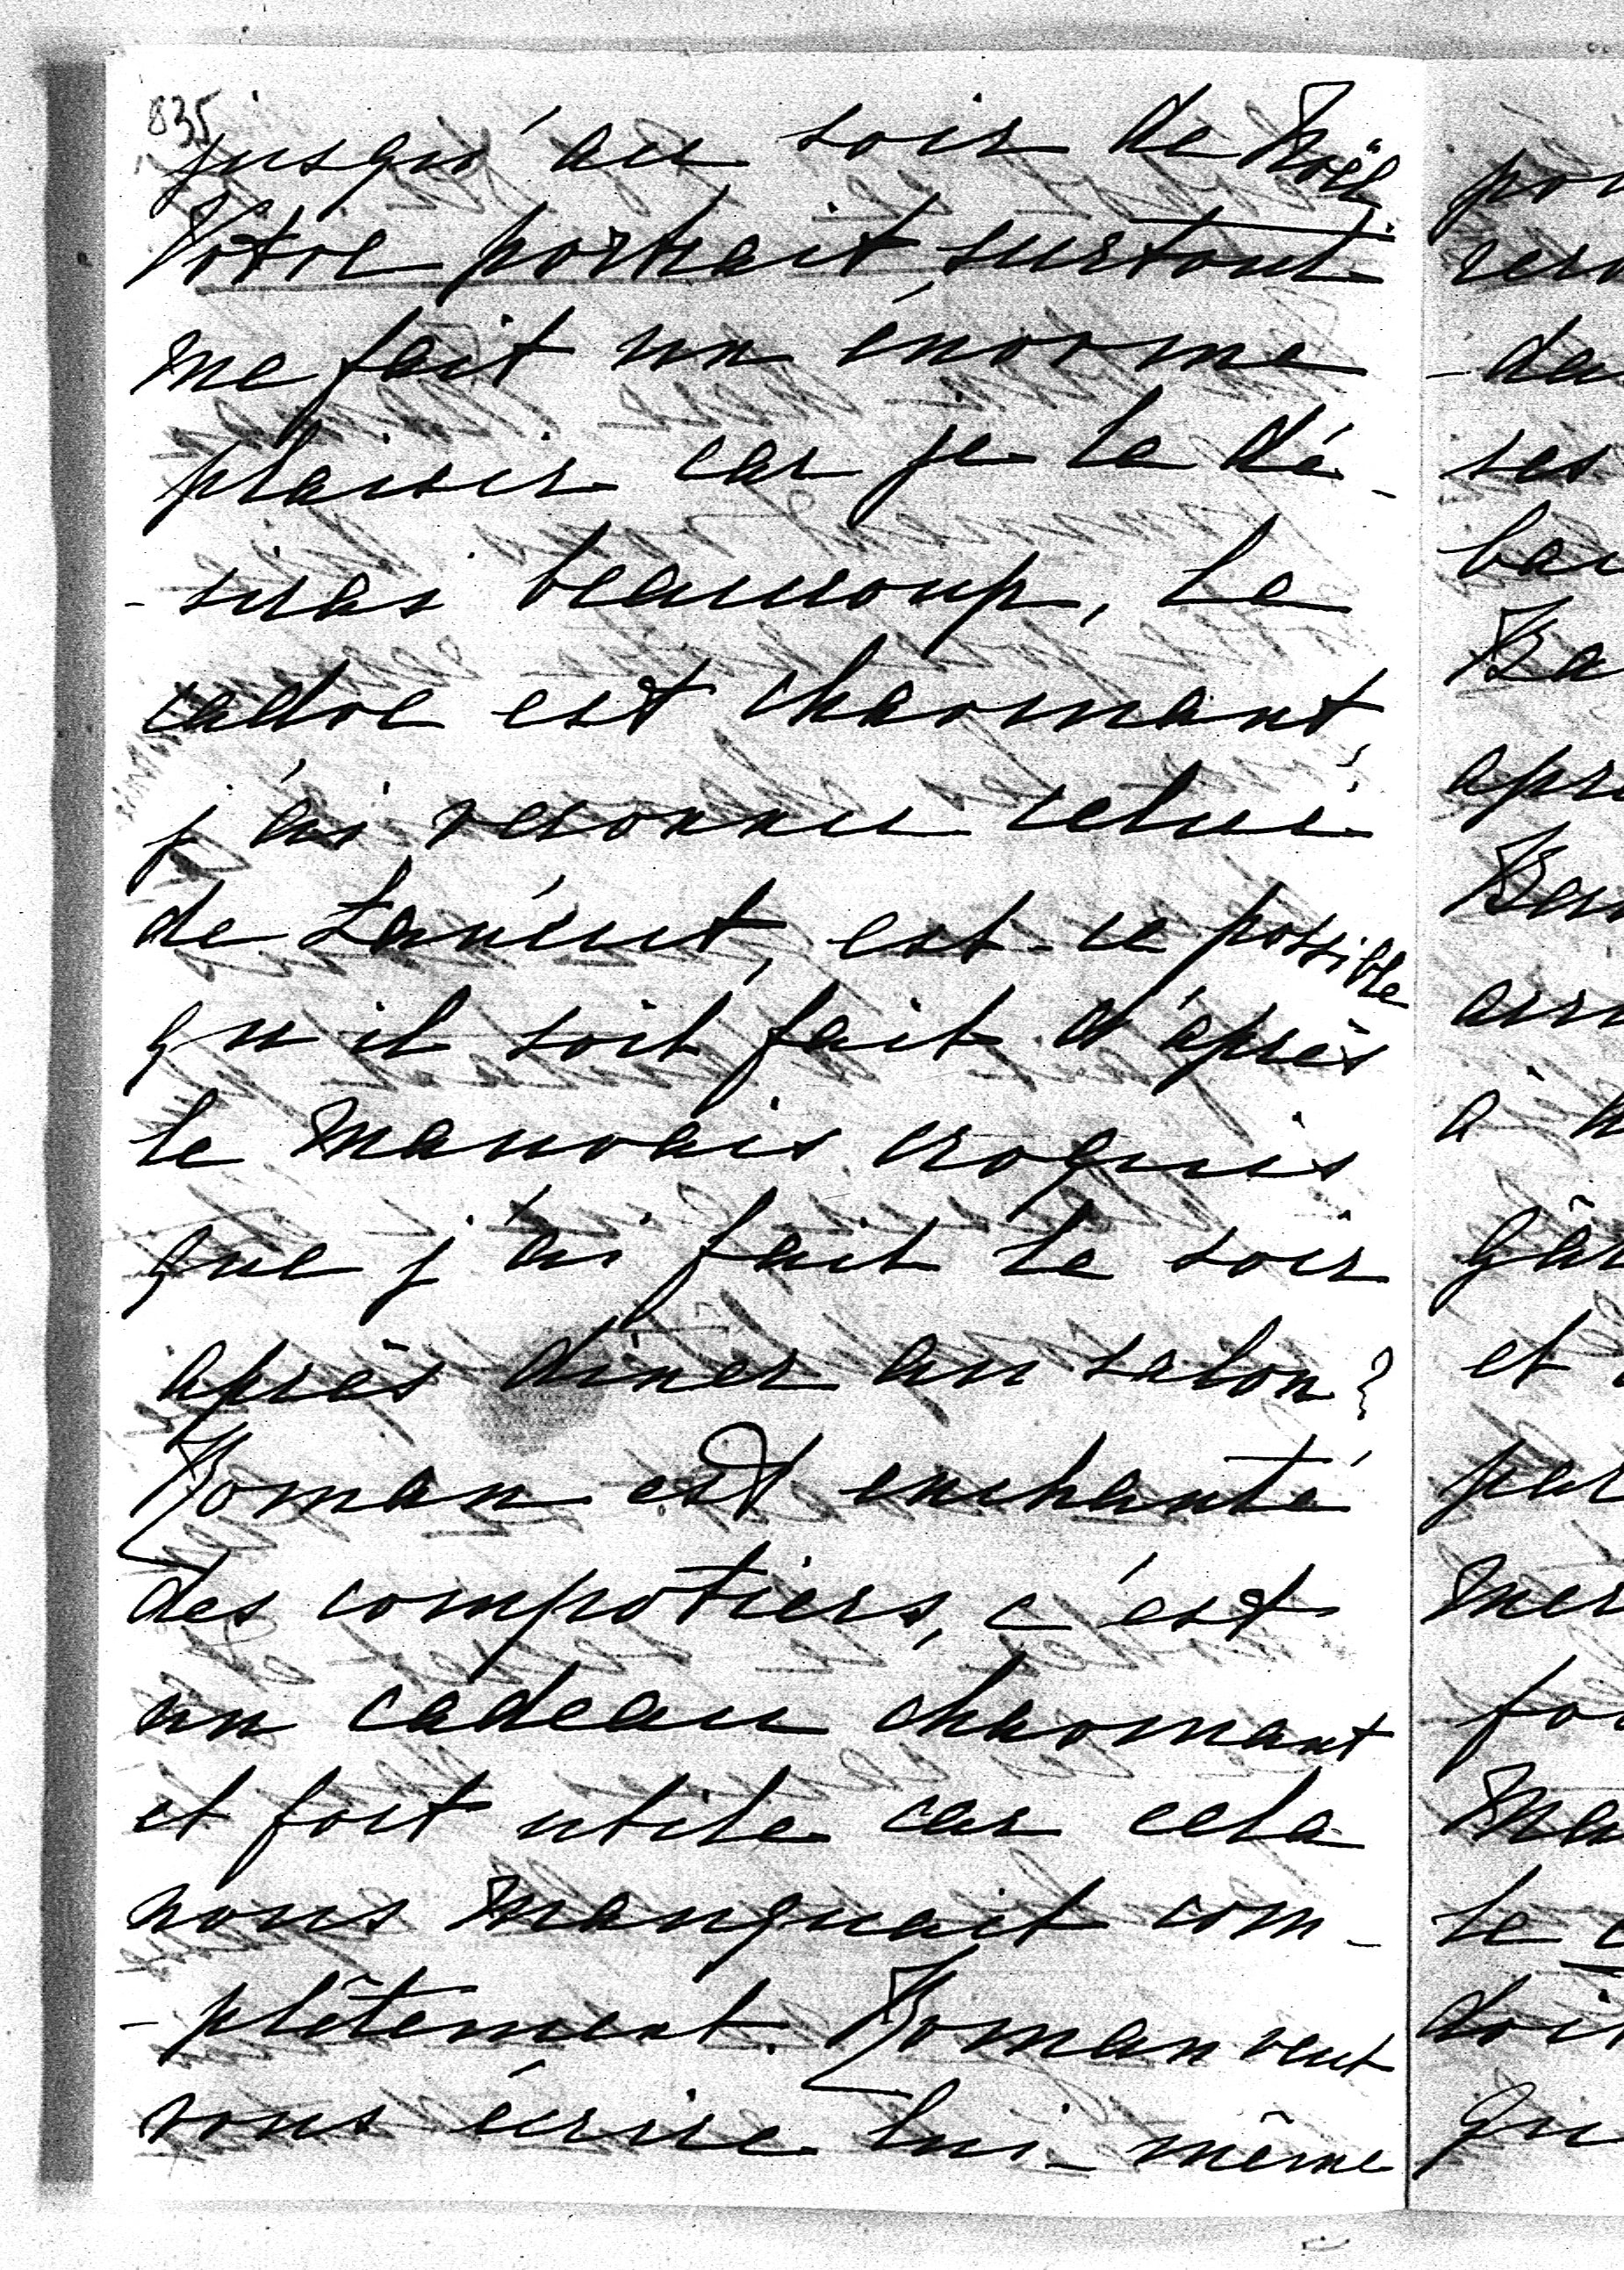 835
jusqu'au soir de Noël.
Votre portrait surtout
me fait un énorme
plaisir car je le dé-
-sirais beaucoup, le
cadre est charmant,
j'ai reconnu celui
de Lanéut, est-ce possible
qu'il soit fait d'après
le mauvais croquis
que j'ai fait le soir
après dîner au salon?
Roman est enchanté
des compotiers, c'est
un cadeau charmant
et fort utile car cela
nous manquait com-
-plêtement. Roman veut
vous écrire lui-même